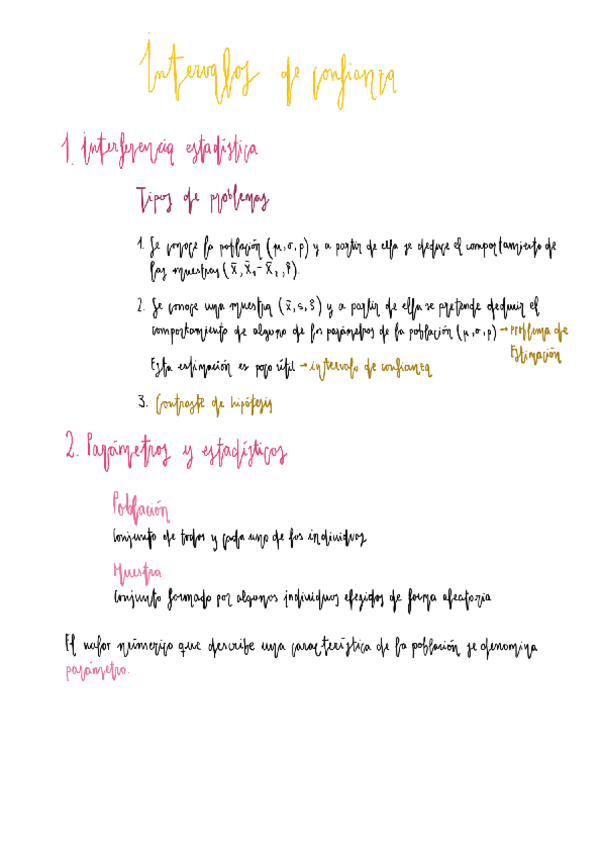 Intervalos de confianza
1. Interferencia estadística
Tipos de problemas
1. Se conoce la población (μ, σ, p) y a partir de ella se deduce el comportamiento de
las muestras (x̄, x̄₁-x̄₂, p̂).
2. Se conoce una muestra (x̄, s, p̂) y a partir de ella se pretende deducir el
comportamiento de alguno de los parámetros de la población (μ, σ, p) → Problema de
Estimación
Esta estimación es poco útil → intervalo de confianza
3. Contraste de hipótesis
2. Parámetros y estadísticos
Población
Conjunto de todos y cada uno de los individuos
Muestra
Conjunto formado por algunos individuos elegidos de forma aleatoria
El valor númerico que describe una característica de la población se denomina
parámetro.